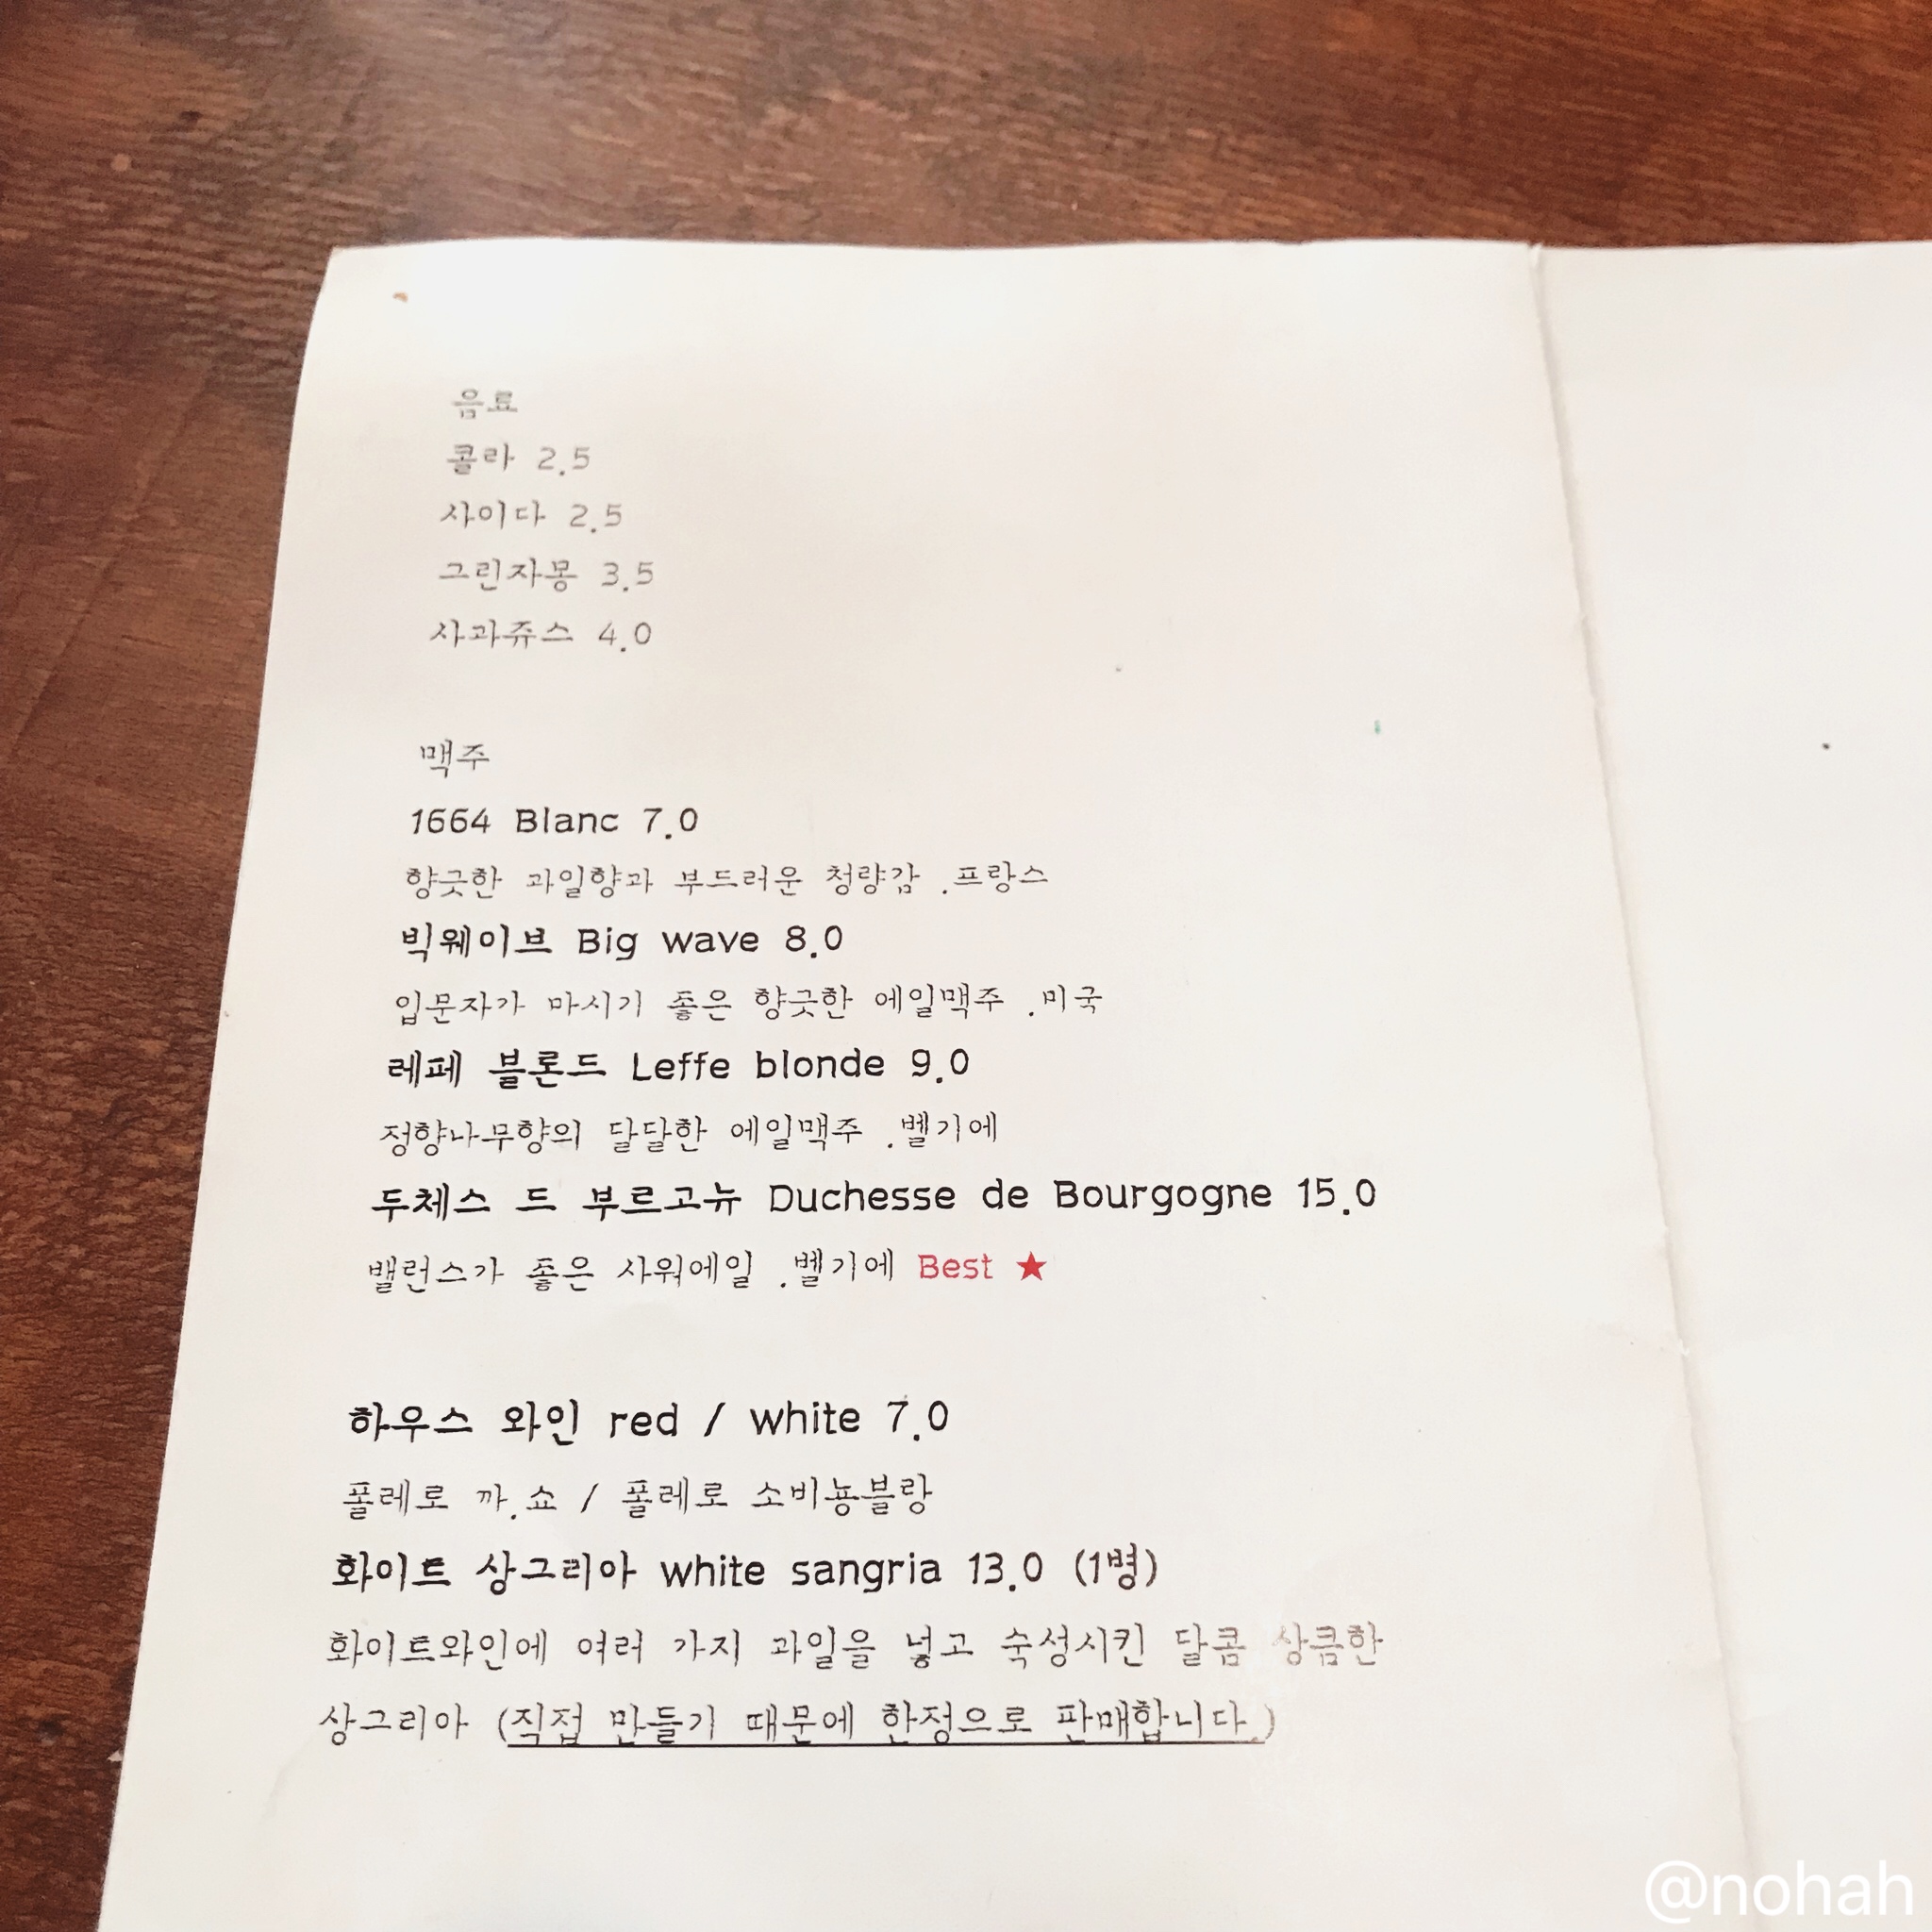 음료
콜라 2.5
사이다 2.5
그린자몽 3.5
사과쥬스 4.0
맥주
1664 Blanc 7.0
향긋한 과일향과 부드러운 청량감 .프랑스
빅웨이브 Big wave 8.0
입문자가 마시기 좋은 향긋한 에일맥주 .미국
레페 블론드 Leffe blonde 9.0
정향나무향의 달달한 에일맥주 .벨기에
두체스 드 부르고뉴 Duchesse de Bourgogne 15.0
밸런스가 좋은 사워에일 .벨기에 Best ★
하우스 와인 red / white 7.0
폴레로 까.쇼 / 폴레로 소비뇽블랑
화이트 상그리아 white sangria 13.0 (1병)
화이트와인에 여러 가지 과일을 넣고 숙성시킨 달콤 상큼한
상그리아 (직접 만들기 때문에 한정으로 판매합니다.)
@nohah